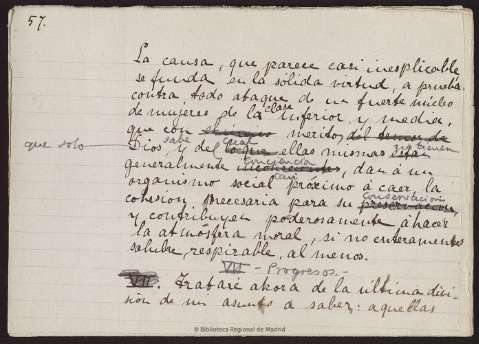 57.
La causa, que parece casi inesplicable,
se funda en la sólida virtud, a prueba
contra todo ataque de un fuerte núcleo
de mujeres de la clase inferior y media,
que con meritos, del temor de
que solo Dios sabe, y de cual ellas mismas no tienen
generalmente conciencia inconscientes, dan á un
organismo social casi próximo á caer, la
cohesion necesaria para su conservacion preservacion,
y contribuyen poderosamente á hacer
la atmósfera moral, si no enteramente
salubre, respirable, al menos.
VII - Progresos.-
VII. Trataré ahora de la última divi-
sión de un asunto a saber: aquellas
© Biblioteca Regional de Madrid